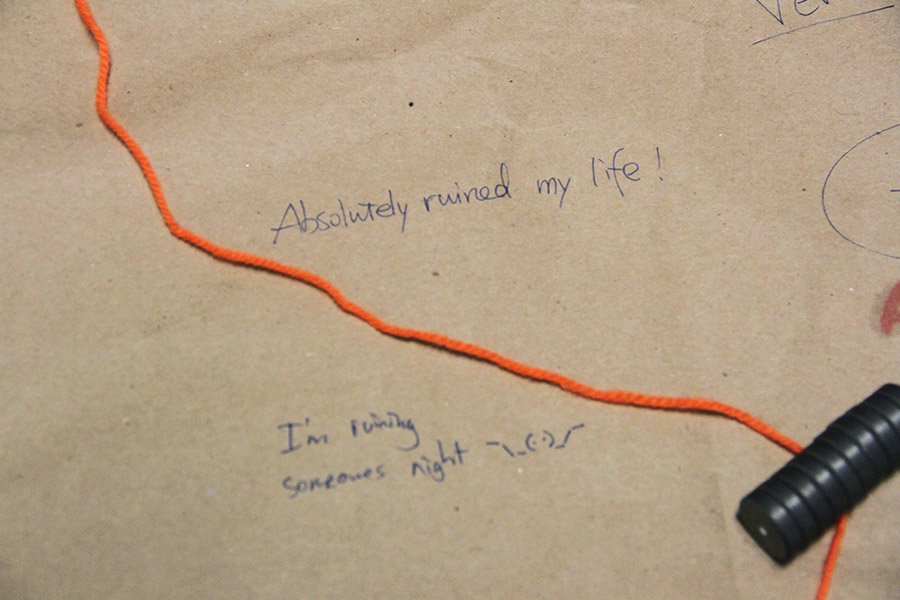 Absolutely ruined my life!
I'm ruining
someones night ¯\_(··)_/¯